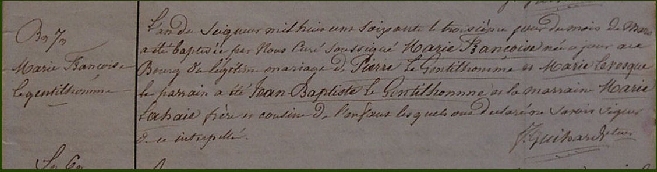 Bn 7n
Marie Francoise
Le gentilhomme
L'an de Seigneur mil huit cent soixante le troisième jour du mois de Mars
a été baptisée par Nous Curé Soussigné Marie Francoise née ce jour au
Bourg de légitime mariage de Pierre Le Gentilhomme et Marie Levesque
le parrain a été Jean Baptiste le Gentilhomme et la marraine Marie
Lahaie frère et cousine de l'enfant lesquels ont déclaré ne Savoir Signer
de ce interpellé